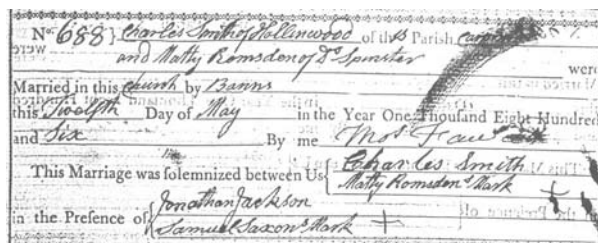 No. 688 } Charles Smith of Hollinwood of this Parish
and Matty Romsden of Do. Spinster
were
Married in this Church by Banns
this Twelfth Day of May in the Year One Thousand Eight Hundred
and Six By me Mos. Fawcett
This Marriage was solemnized between Us { Charles Smith
Matty Romsden's Mark +
in the Presence of { Jonathan Jackson
Samuel Saxon's Mark +